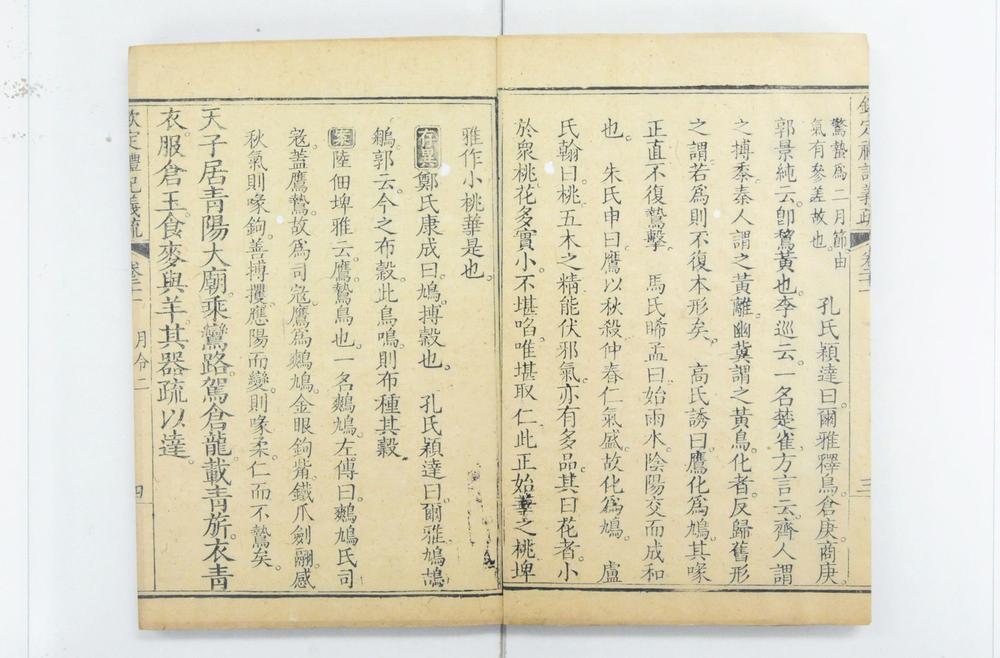 欽定禮記義疏
卷二十一
三
驚蟄爲二月節由
氣有參差故也。
孔氏穎達曰爾雅釋鳥倉庚商庚。
郭景純云卽鶩黃也李巡云一名楚雀方言云齊人謂
之搏黍秦人謂之黃離幽冀謂之黃鳥化者反歸舊形
之謂若爲則不復本形矣。 高氏誘曰鷹化爲鳩其喙
正直不復鷙擊。 馬氏晞孟曰始雨水陰陽交而成和
也。 朱氏申曰鷹以秋殺仲春仁氣盛故化爲鳩。 盧
氏翰曰桃五木之精能伏邪氣亦有多品其曰花者小
於衆桃花多實小不堪啗唯堪取仁此正始華之桃埤
雅作小桃華是也。
存異鄭氏康成曰鳩搏穀也。 孔氏穎達曰爾雅鳲鳩鴶
鵴郭云今之布穀此鳥鳴則布種其穀
案陸佃埤雅云鷹鷙鳥也。一名鷞鳩左傳曰鷞鳩氏司
寇蓋鷹鷙故爲司寇鷹爲鷞鳩金眼鉤觜鐵爪劍翮感
秋氣則喙鉤善搏攫應陽而變則喙柔仁而不鷙矣。
天子居青陽大廟乘鸞路駕倉龍載青旂衣青
衣服倉玉食麥與羊其器疏以達
欽定禮記義疏
月令二
四